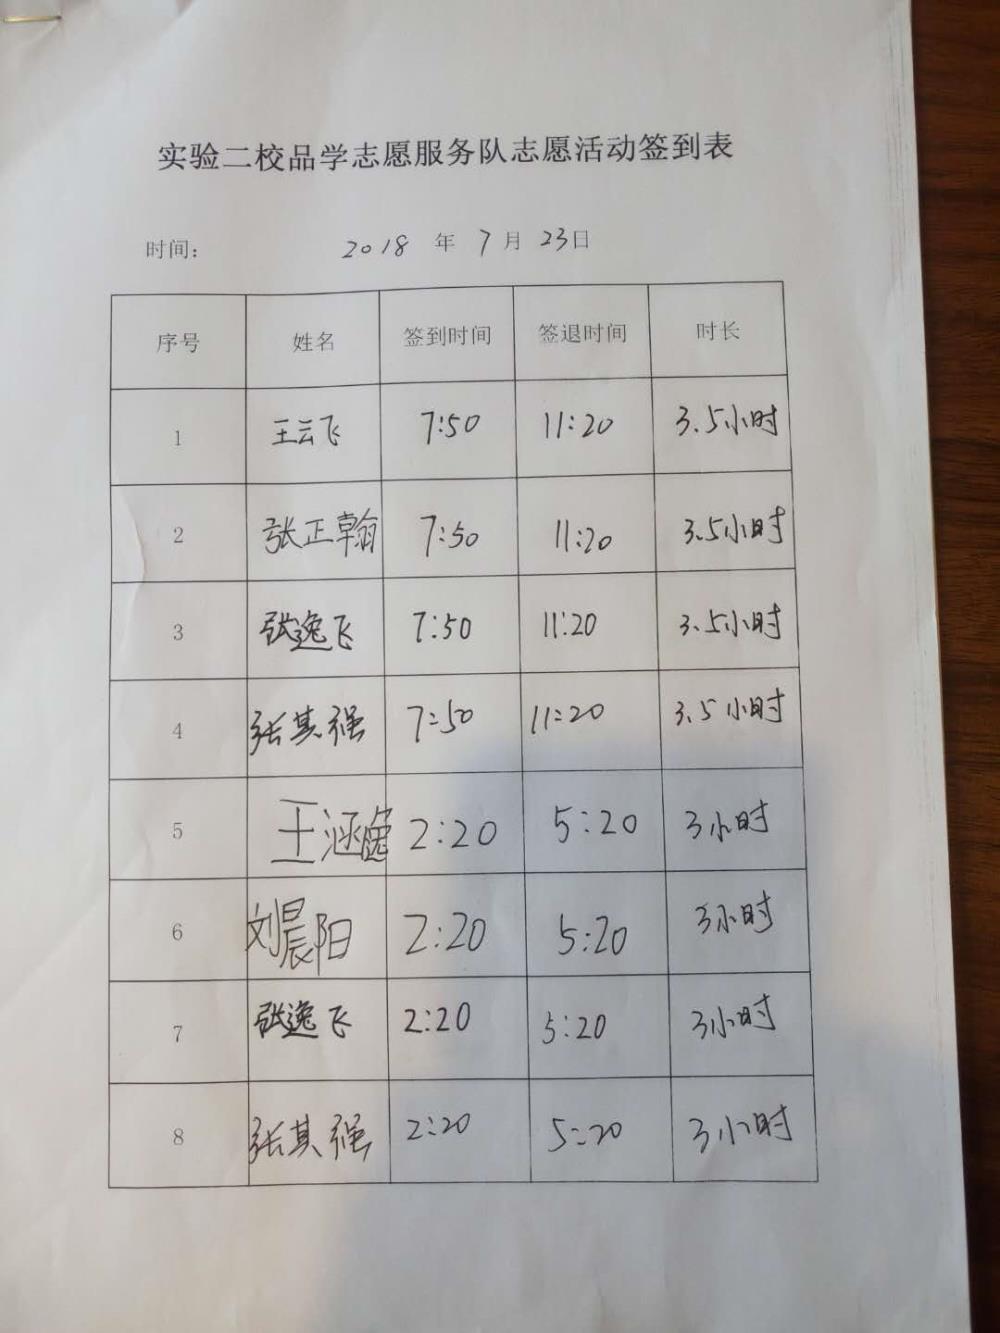 实验二校品学志愿服务队志愿活动签到表
时间: 2018 年 7 月 23日
序号 姓名 签到时间 签退时间 时长
1 王云飞 7:50 11:20 3.5小时
2 张正翰 7:50 11:20 3.5小时
3 张逸飞 7:50 11:20 3.5小时
4 张其强 7:50 11:20 3.5小时
5 王涵逸 2:20 5:20 3小时
6 刘晨阳 2:20 5:20 3小时
7 张逸飞 2:20 5:20 3小时
8 张其强 2:20 5:20 3小时